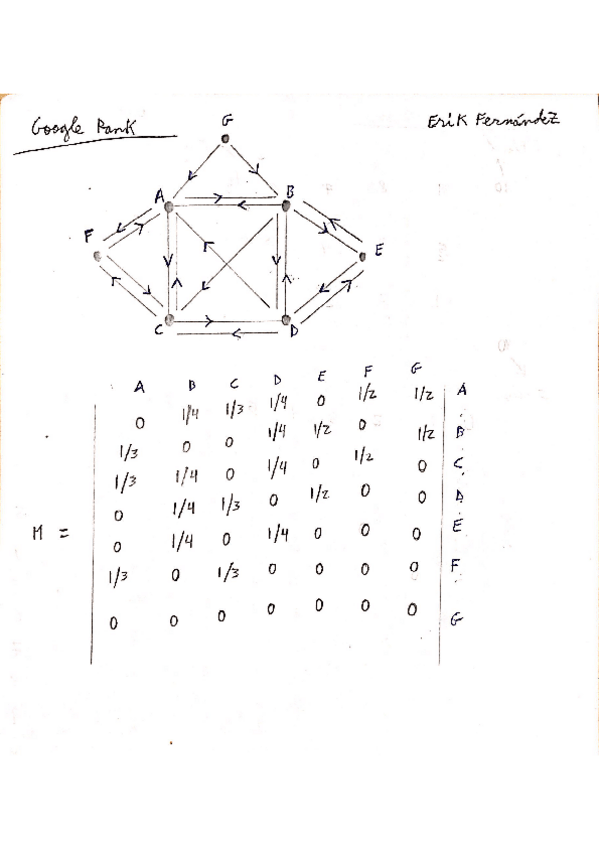 Google Rank
Erik Fernández
G
A B
F E
C D
A B C D E F G
0 1/4 1/3 1/4 0 1/2 1/2 A
1/3 0 0 1/4 1/2 0 1/2 B
1/3 1/4 0 1/4 0 1/2 0 C
0 1/4 1/3 0 1/2 0 0 D
M = 0 1/4 0 1/4 0 0 0 E
1/3 0 1/3 0 0 0 0 F
0 0 0 0 0 0 0 G